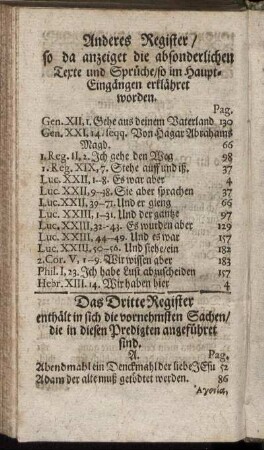 Anderes Register/
so da anzeiget die absonderlichen
Texte und Sprüche/so im Haupt-
Eingängen erklähret
worden.
Pag.
Gen. XII, 1. Gehe aus deinem Vaterland 130
Gen. XXI. 14. seqq. Von Hagar Abrahams
Magd. 66
1. Reg. II, 2. Ich gehe den Weg 98
1. Reg. XIX, 7. Stehe auff und iß. 37
Luc. XXII, 1-8. Es war aber 4
Luc. XXII, 9-38. Sie aber sprachen 37
Luc. XXII, 39-71. Und er gieng 66
Luc. XXIII, 1-31. Und der gantze 97
Luc. XXIII, 32-43. Es wurden aber 129
Luc. XXIII, 44-49. Und es war 157
Luc. XXIII, 50-56. Und siehe/ein 182
2. Cor. V, 1-9. Wir wissen aber 183
Phil. I, 23. Ich habe Lust abzuscheiden 157
Hebr. XIII. 14. Wir haben hier 4
Das Dritte Register
enthält in sich die vornehmsten Sachen/
die in diesen Predigten angeführet
sind.
A. Pag.
Abendmahl ein Denckmahl der liebe JEsu 52
Adam der alte muß getödtet werden. 86
Ἀγωνία,